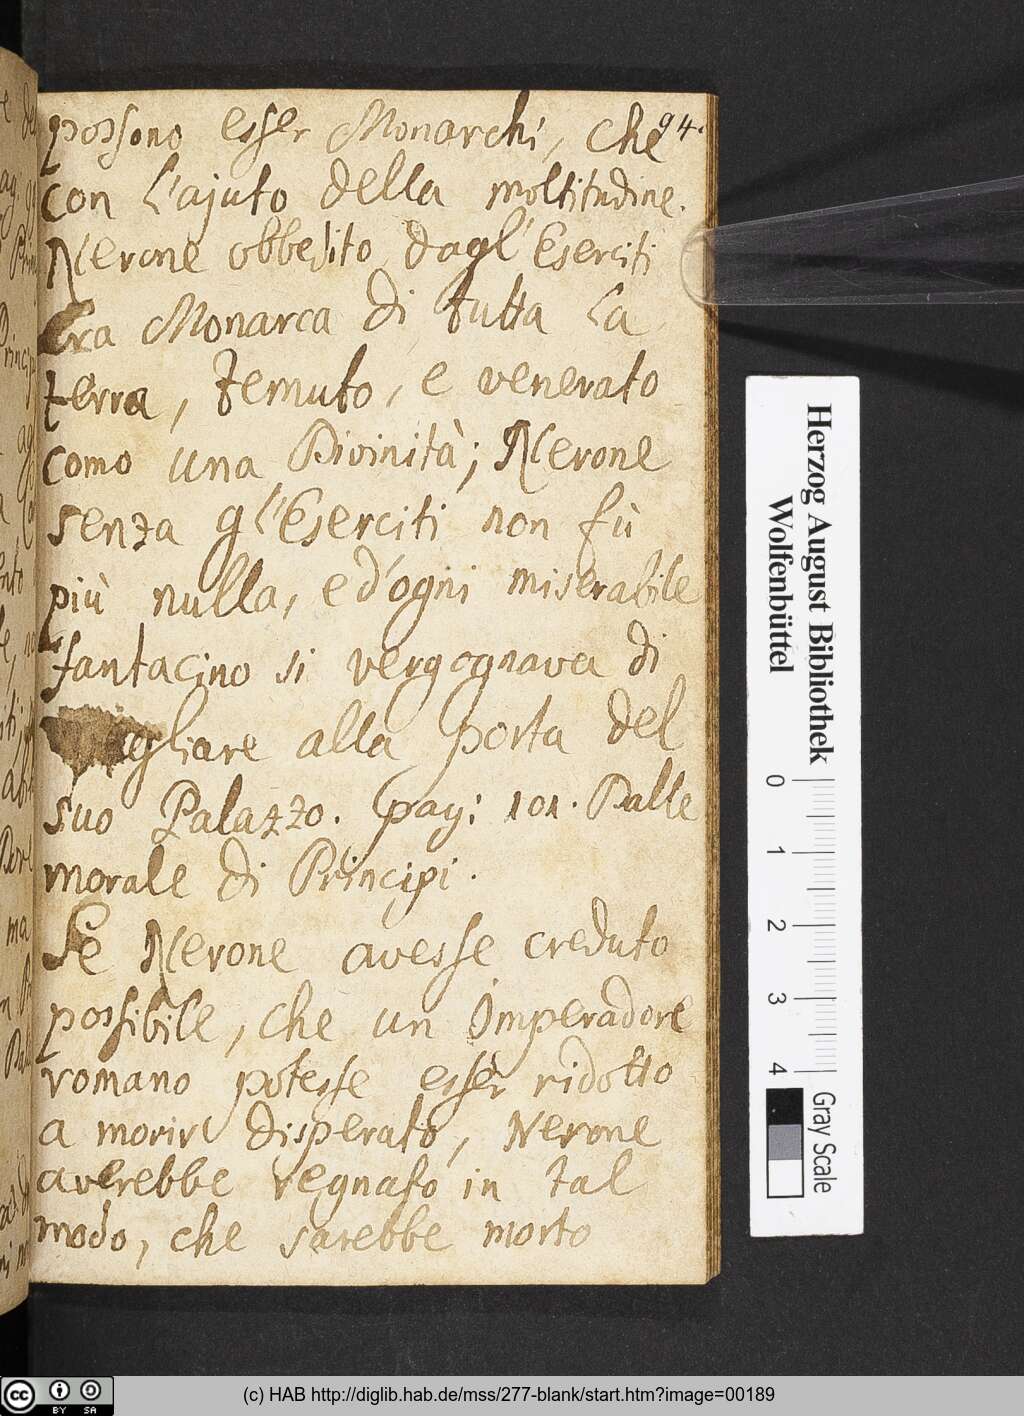 94.
possono esser Monarchi, che
con l'ajuto della moltitudine.
Nerone obbedito dagl'Eserciti
Era Monarca di tutta la
terra, temuto, e venerato
como una Divinità; Nerone
senza gl'Eserciti non fù
più nulla, e d'ogni miserabile
fantacino si vergognava di
gliare alla porta del
suo Palazzo. pag: 101. Dalle
morale di Principi.
Se Nerone avesse creduto
possibile, che un Imperadore
romano potesse esser ridotto
a morir disperato, Nerone
averebbe regnato in tal
modo, che sarebbe morto
Herzog August Bibliothek
Wolfenbüttel
0 1 2 3 4
Gray Scale
cc BY SA
(c) HAB http://diglib.hab.de/mss/277-blank/start.htm?image=00189